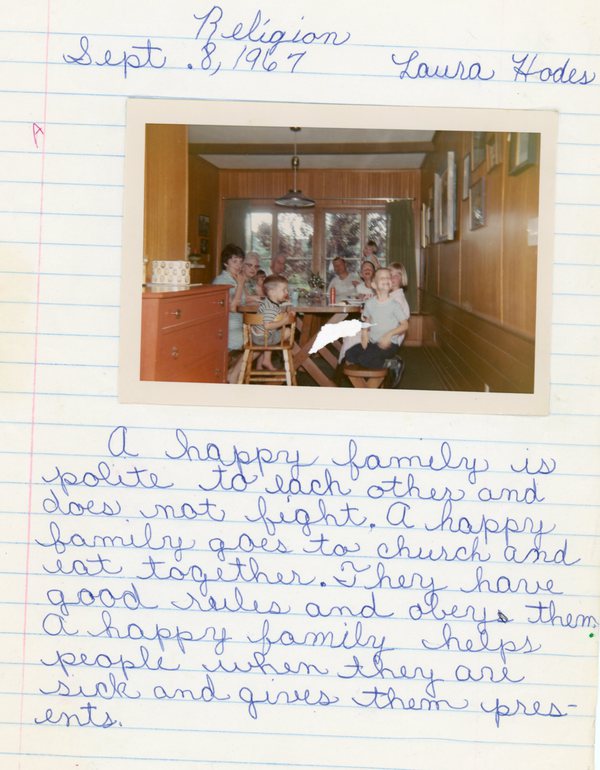 Religion
Sept. 8, 1967 Laura Hodes
A
A happy family is
polite to each other and
does not fight. A happy
family goes to church and
eat together. They have
good rules and obeys them.
A happy family helps
people when they are
sick and gives them pres-
ents.